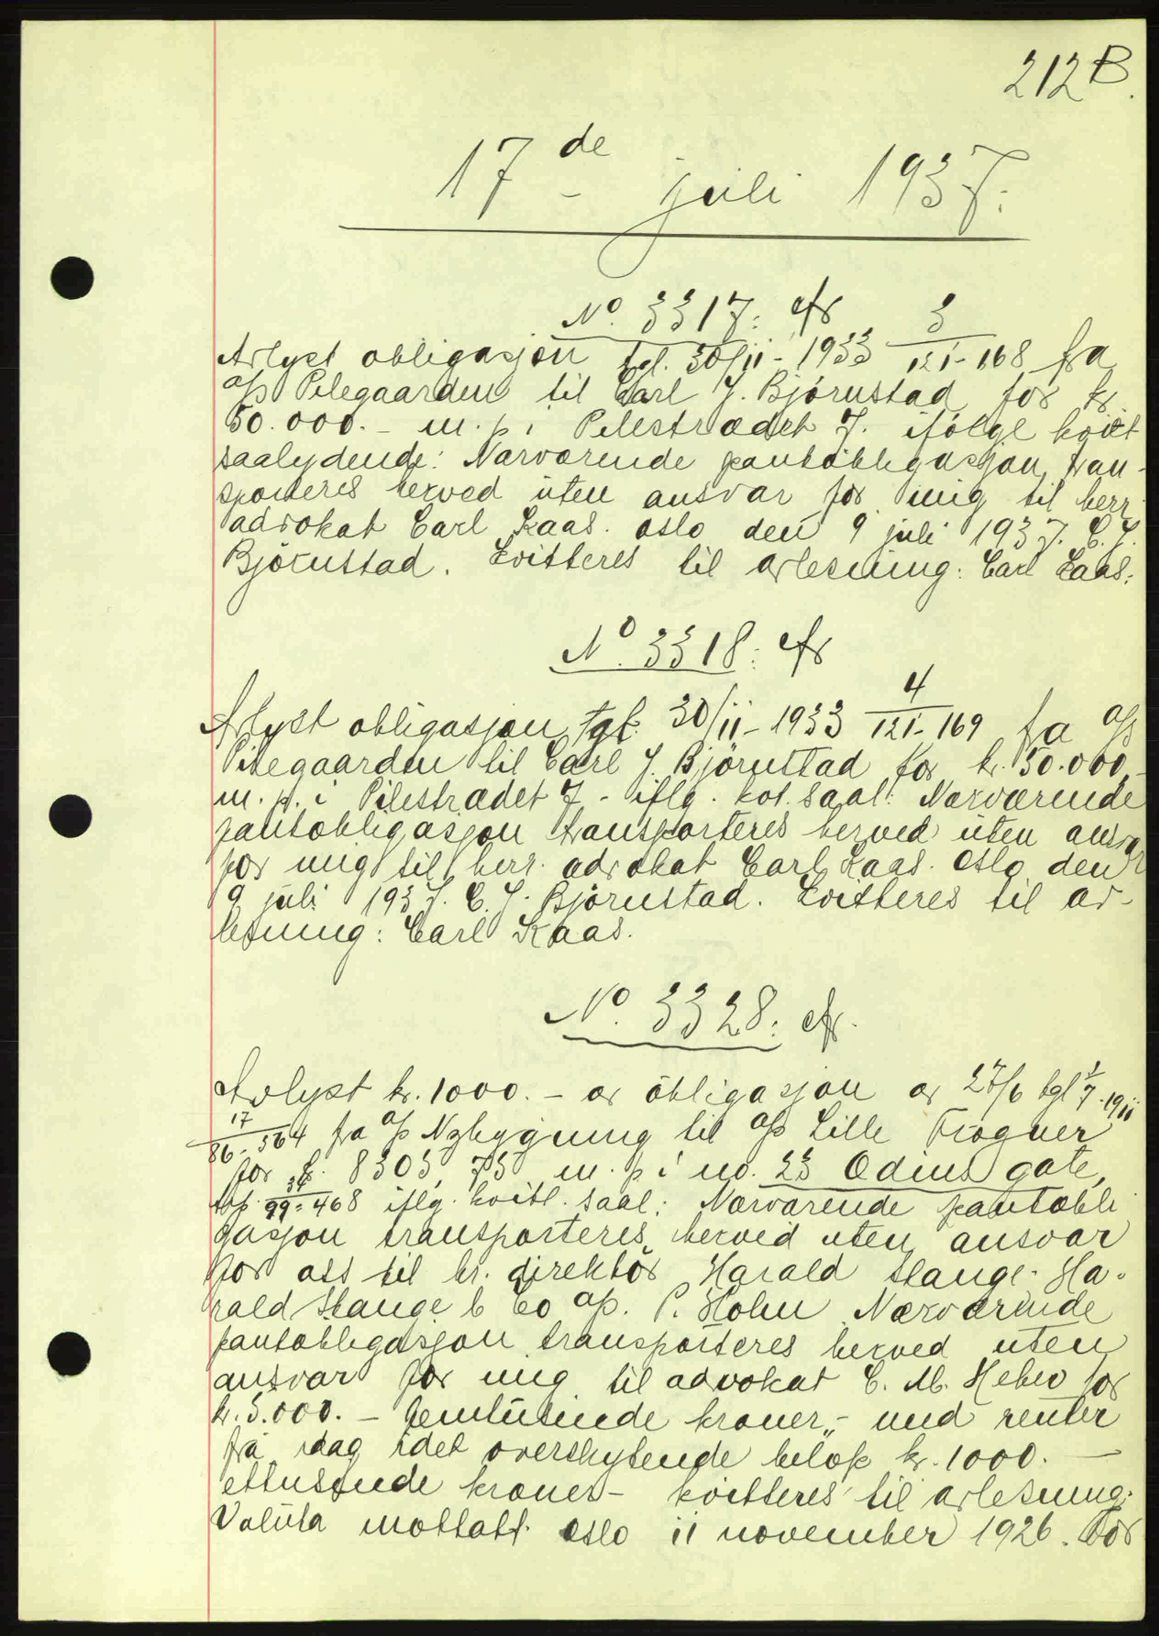 212 B.
17de juli 1937.
No. 3317: Av
Avlyst obligasjon tgl. 30/11-1933 3/121-168 fra
a/s Pilegaarden til Carl J. Björnstad for kr.
50.000.- m. p. i Pilestrædet 7. ifölge kvitt
saalydende: Nærværende pantobligasjon tran-
sporteres herved uten ansvar for mig til herr
advokat Carl Kaas. Oslo den 9 juli 1937. C. J.
Björnstad. Kvitteres til avlesning: Carl Kaas.
No. 3318: Av
Avlyst obligasjon tgl. 30/11-1933 4/121-169 fra a/s
Pilegaarden til Carl J. Björnstad for kr. 50.000.-
m. p. i Pilestrædet 7 - iflg. kvt. saal: Nærværende
pantobligasjon transporteres herved uten ansvar
for mig til herr advokat Carl Kaas. Oslo den
9 juli 1937. C. J. Björnstad. Kvitteres til av-
lesning: Carl Kaas.
No. 3328: Av.
Avlyst kr. 1000.- av obligasjon av 27/6 tgl 1/7-1911
17/86-564 fra a/s Nybygning til a/s Lille Frogner
for kr. 8303,75 m. p. i no. 23 Odins gate,
34/99-468 iflg. kvitt. saal: Nærværende pantobli
gasjon transporteres herved uten ansvar
for oss til hr. direktör Harald Stange. Ha-
rald Stange & Co a/s. P. Holm. Nærværende
pantobligasjon transporteres herved uten
ansvar for mig til advokat C. M. for
kr. 5.000.- femtusinde kroner,- med renter
fra idag idet overskytende belöp kr. 1000.-
ettusinde kroner- kvitteres til avlesning.
Valuta mottatt. Oslo 11 november 1926. For